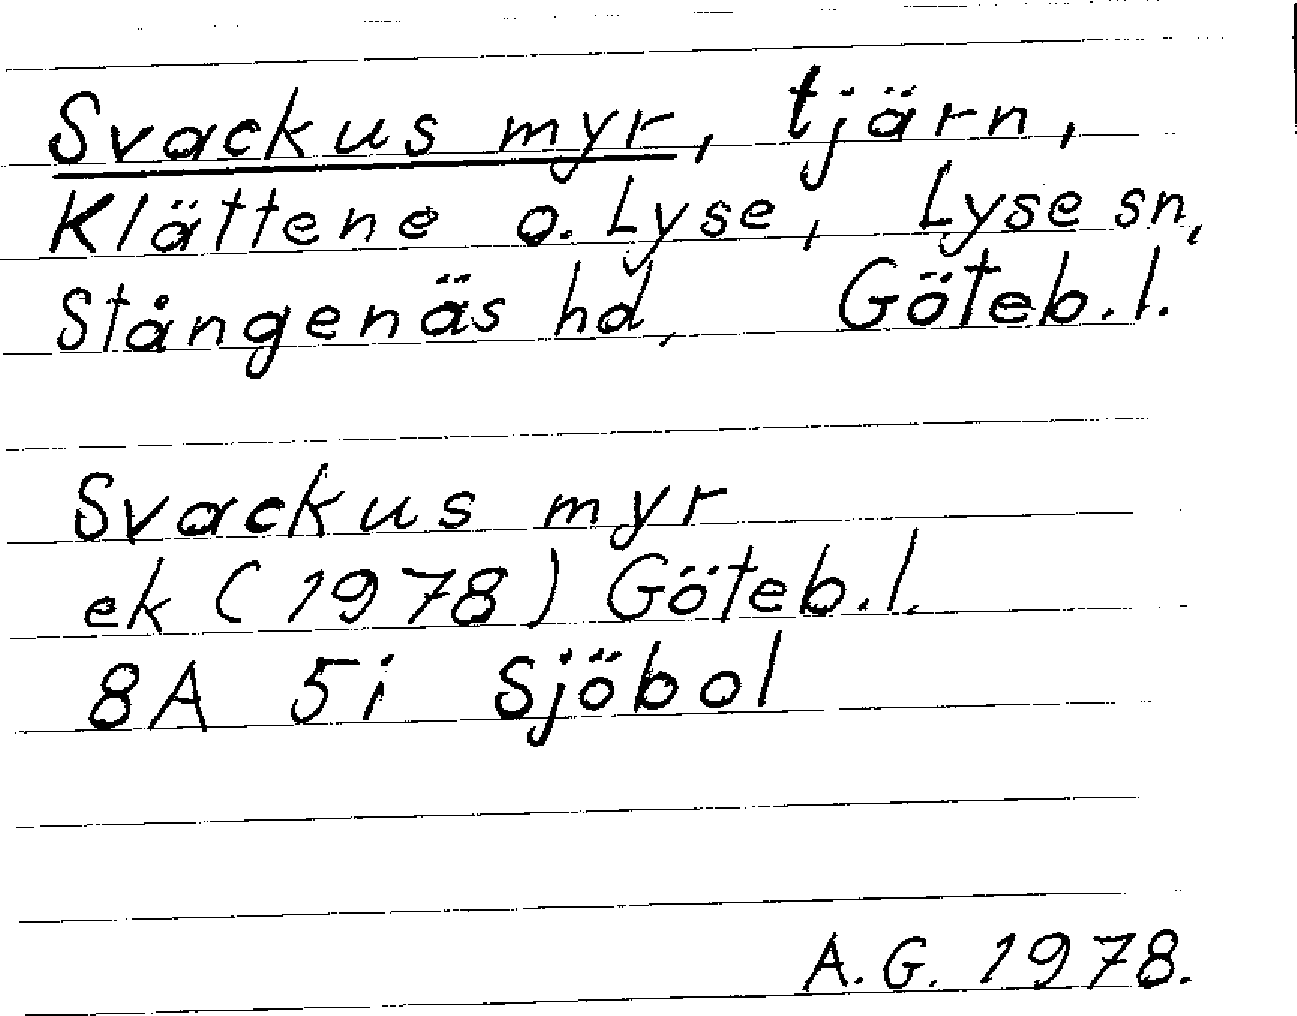 Svackus myr, tjärn,
Klättene o. Lyse, Lyse sn,
Stångenäs hd, Göteb. l.
Svackus myr
ek (1978) Göteb. l.
8A 5i Sjöbol
A.G. 1978.